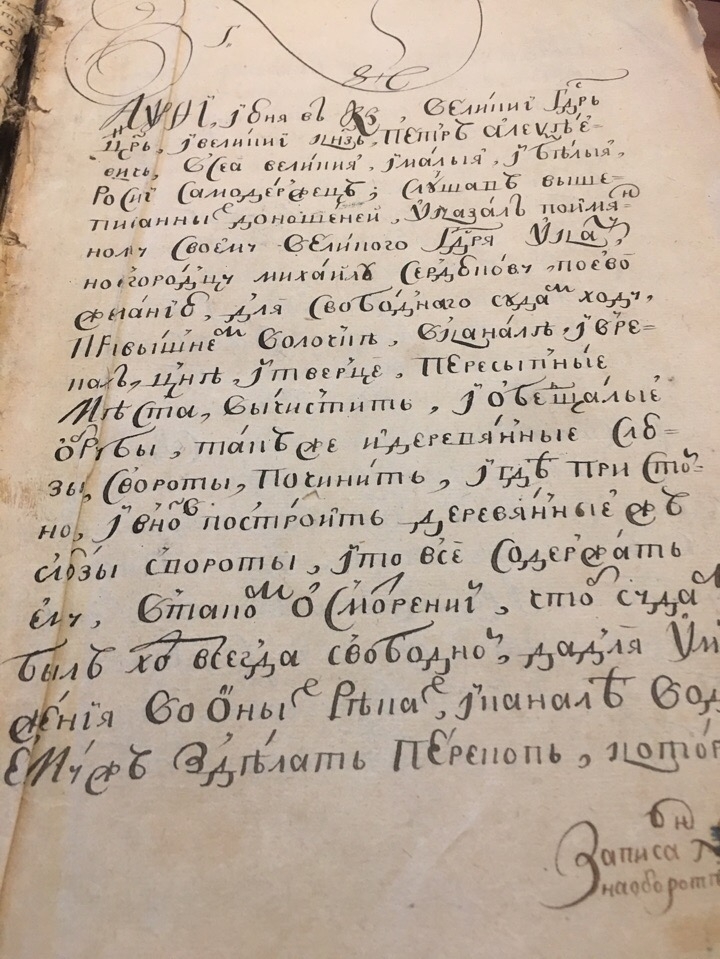 аѱиі, июня въ кз, великиі гдрь
црь, ивеликиі кнзь, петръ алеѯѣе=
вичь, всеа великия, ималыя, ибѣлыя,
росиі самодержецъ, слушавъ выше=
писанные доношеней, указалъ поимян=
ному своему великого гдря указу,
новгородцу михайлу сердюкову, поево
желанию, для свободного судам ходу,
привышнем волочкѣ, вканалѣ, иврѣ=
кахъ, цнѣ, итверце, пересыпные
мѣста, вычистить, иобещалые
срубы, такъже идеревянные слю=
зы, свороты, починить, игдѣ при стой=
но, ивновь построить деревянныежъ
слюзы своротты, ито все содержать
ему, втаком осмотрениі, чтоб судам
былъ ход всегда свободной,ададля умно
жения вооные рѣках, иканалѣ вод
емужъ здѣлать перекопь, котор
записа
наоборотѣ